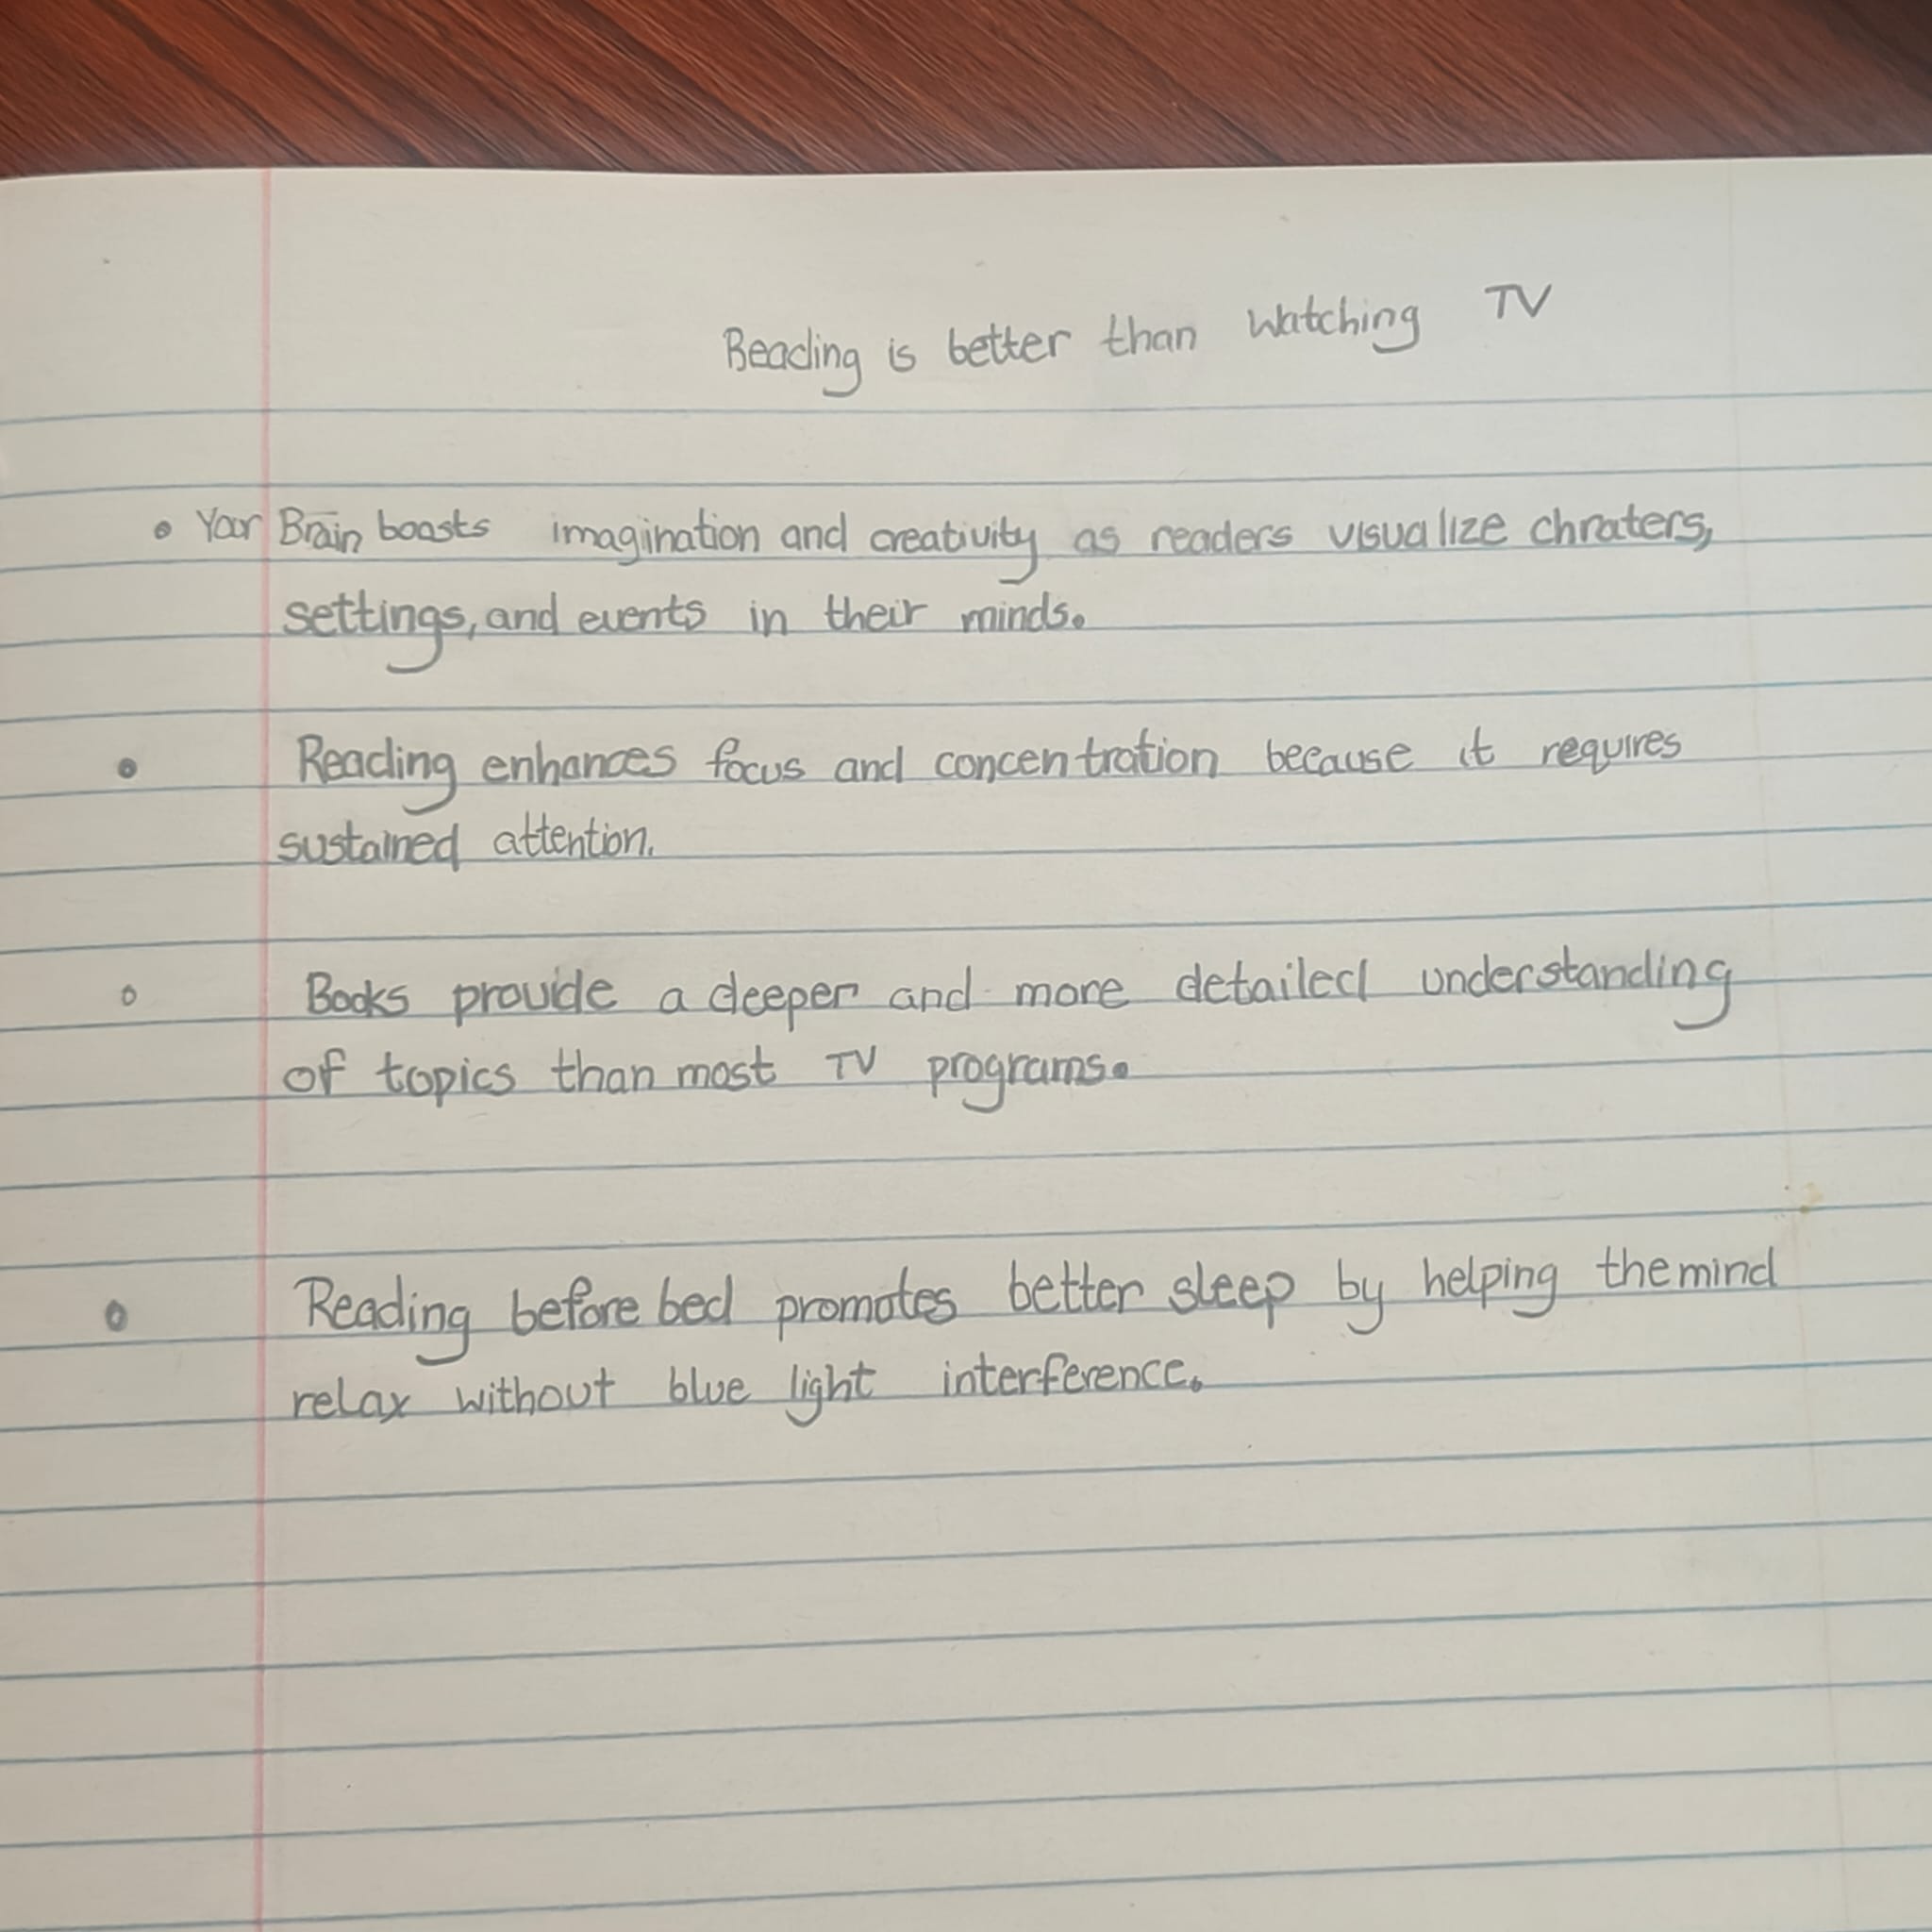 Reading is better than watching TV
• Your Brain boosts imagination and creativity as readers visualize chraters,
settings, and events in their minds.
• Reading enhances focus and concentration because it requires
sustained attention.
• Books provide a deeper and more detailed understanding
of topics than most TV programs.
• Reading before bed promotes better sleep by helping the mind
relax without blue light interference.